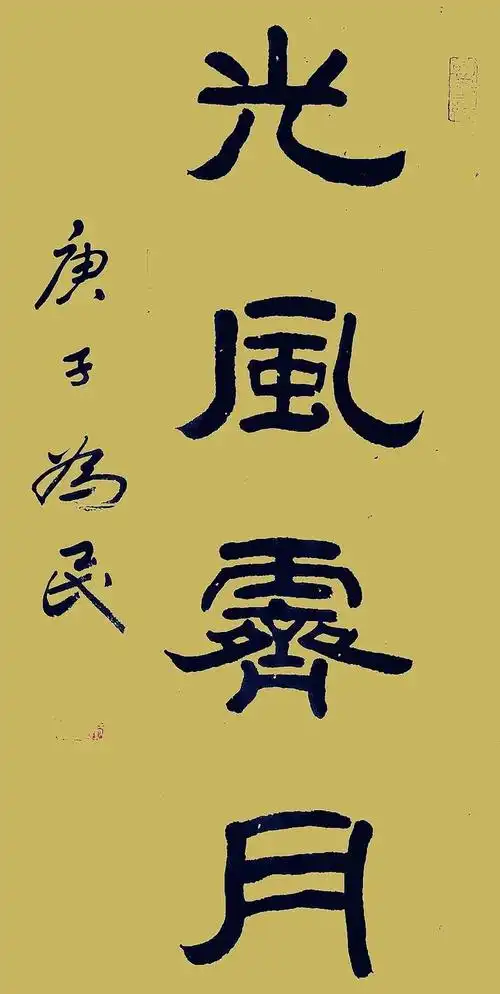 光風霽月
庚子為民